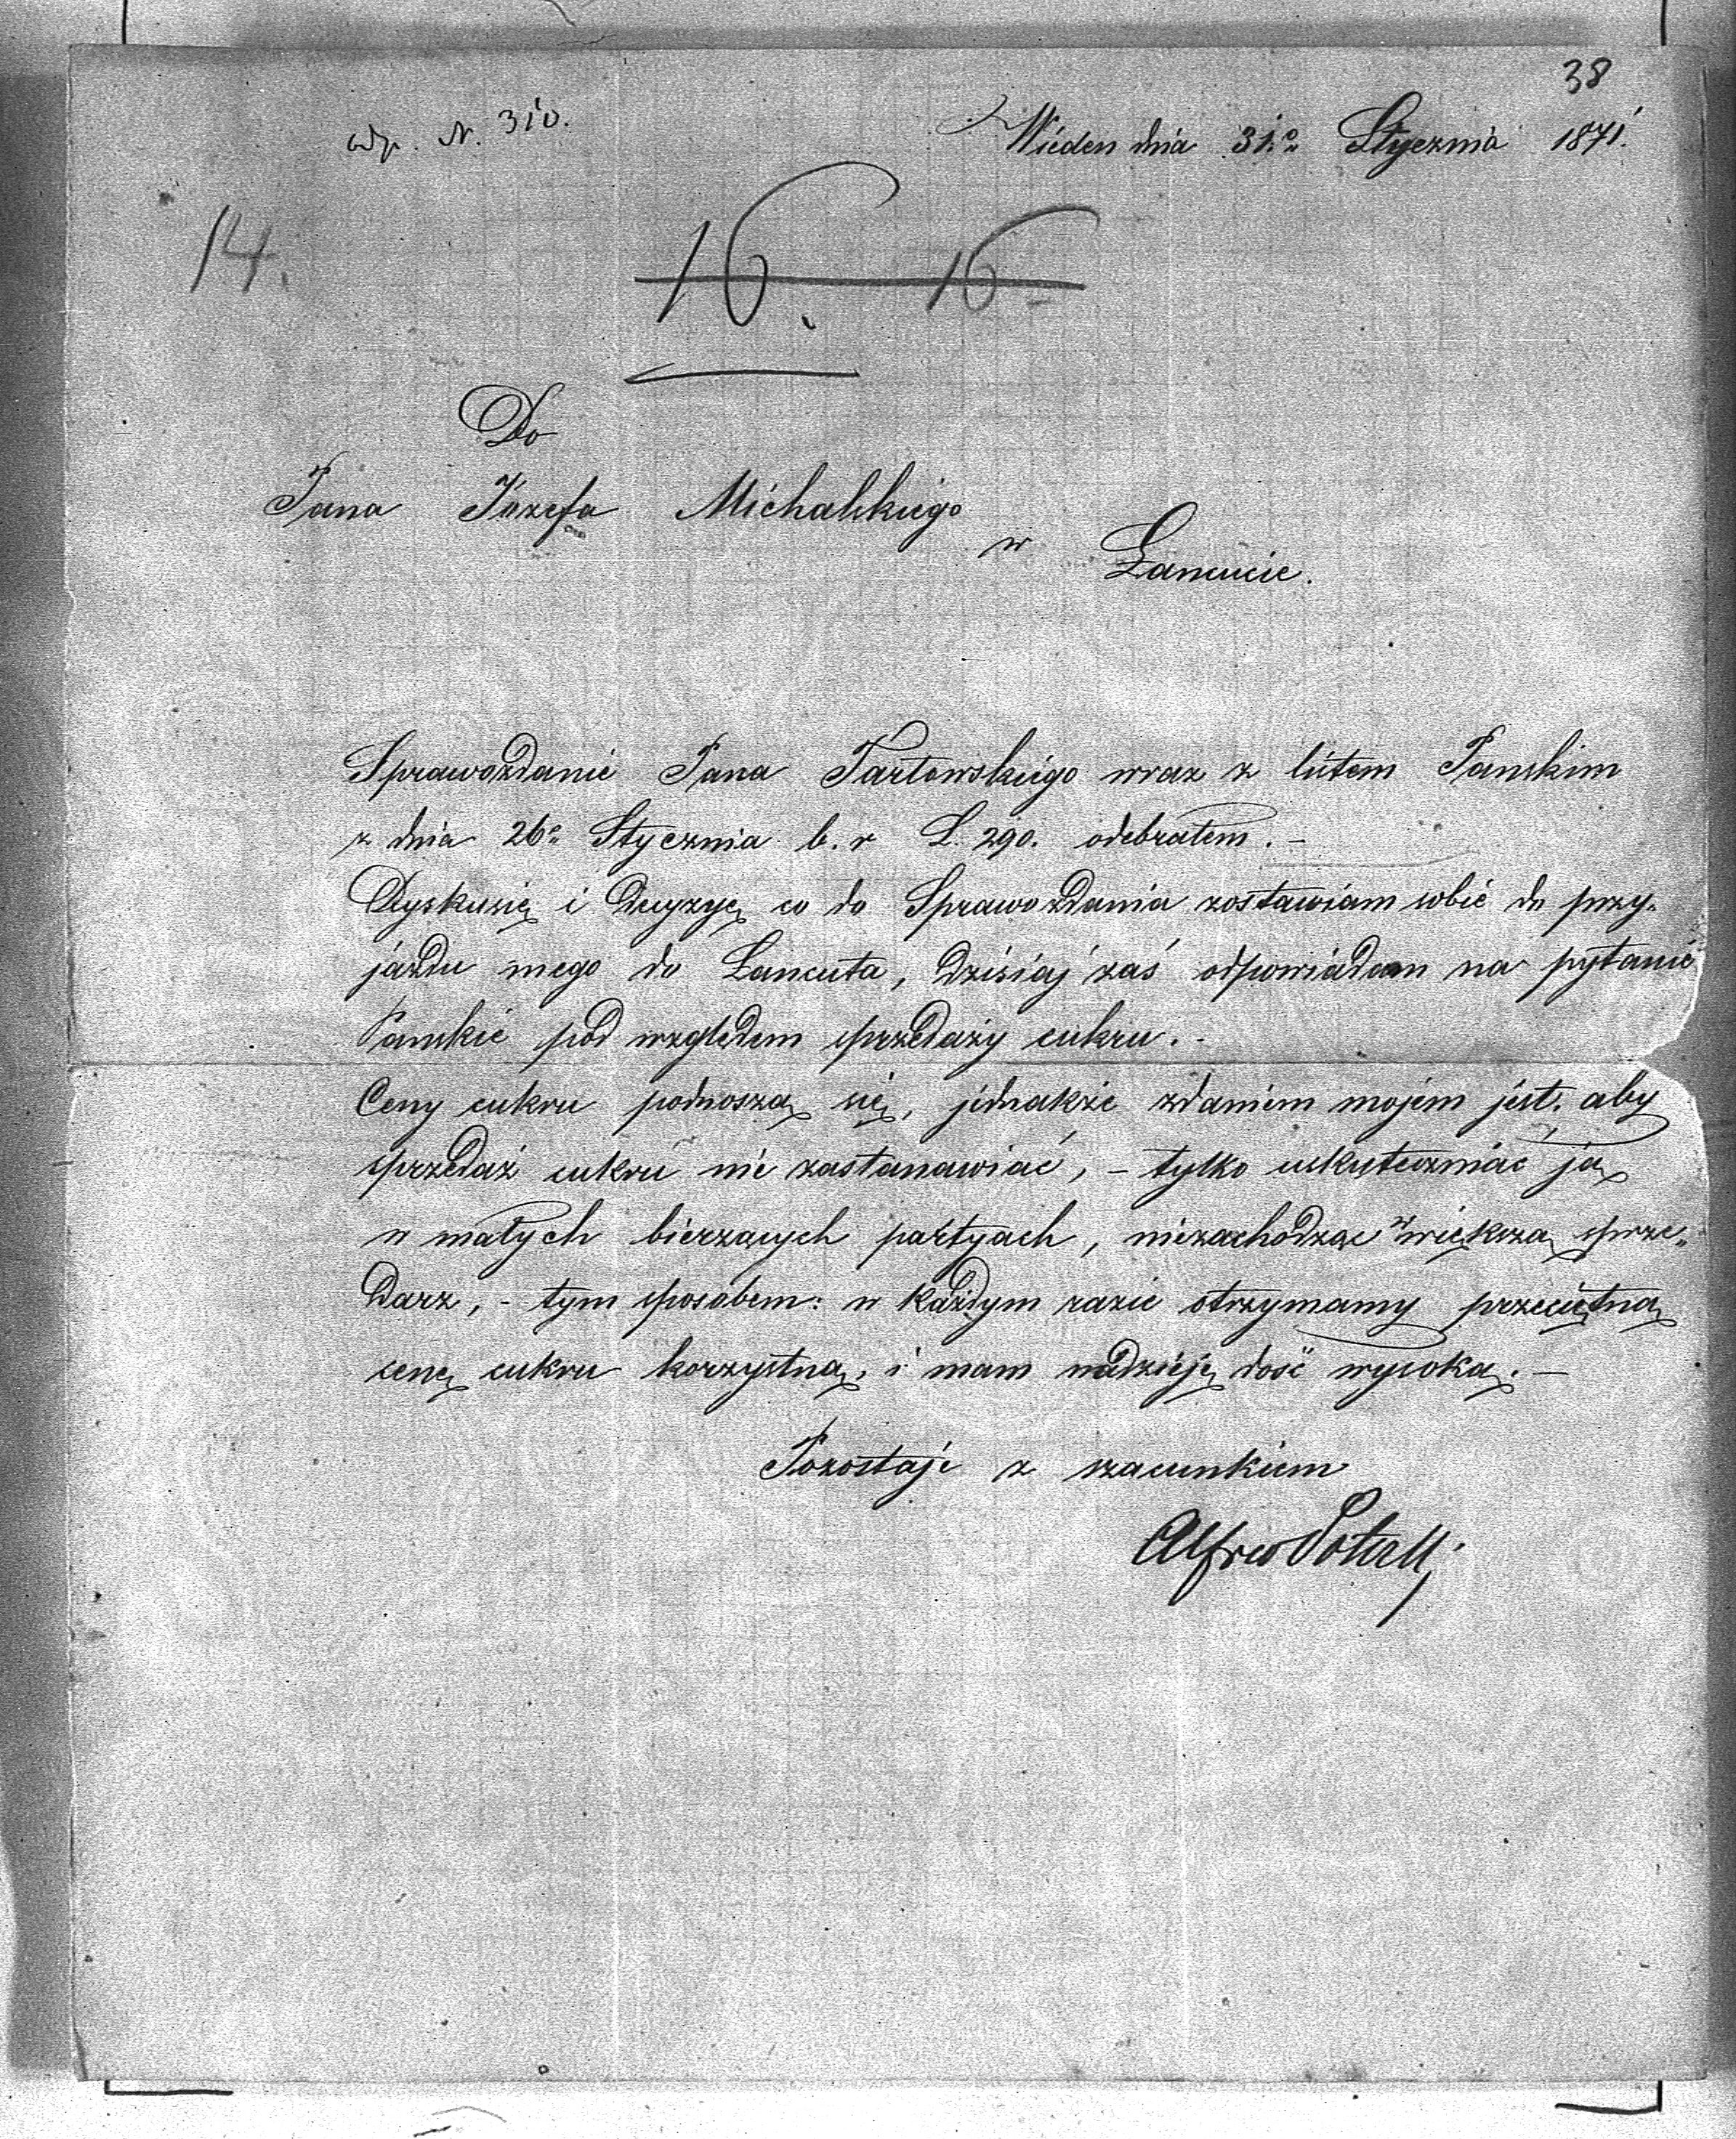 38
odp. N. 310.
Wieden dnia 31.º Stycznia 1871.
14.
16. 16
Do
Pana Józefa Michalskiego
w Łancucie.
Sprawozdanie Pana Tartowskiego wraz z listem Panskim
z dnia 26º Stycznia b. r L. 290. odebrałem. –
Dyskusię i Decyzyę co do Sprawozdania zostawiam sobie do przy-
jazdu mego do Łancuta, dzisiaj zaś odpowiadam na pytanie
Panskie pod względem sprzedaży cukru. -
Ceny cukru podnoszą się, jednakże zdaniem mojem jest. aby
sprzedaż cukru nie zastanawiać, – tylko uskuteczniać ją
w małych bierzących partyach, niezachodząc w większą sprze-
darz, - tym sposobem: w każdym razie otrzymamy przeciętną
cenę cukru korzystną, i mam nadzieję dość wysoką. —
Pozostaje z szacunkiem
Alfred Potocki